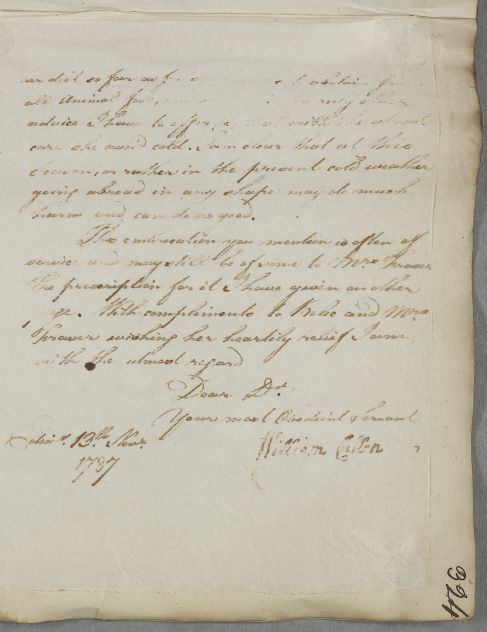 her diet so far as
all Animal food,
advice I have to offer is that with the utmost
care she avoid cold. I am clear that at this
Season, or rather in the present cold weather
going abroad in any shape may do much
harm and can do no good.
The embrocation you mention is often of
service and may still be of some to Mrs Fraser
The prescription for it I have given on other
page. With compliments to and Mrs
Fraser wishing her heartily relief I am,
with the utmost regard
Dear Dr
Yours most Obedient Servant
Edinr 13th Novr William Cullen
1787
324